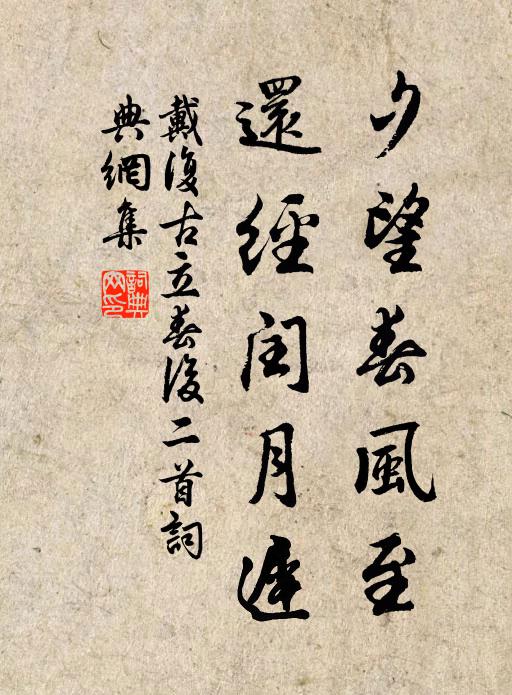 久望春風至
還經閏月遲
戴復古立春後二首詞
典網集
詞典
网印